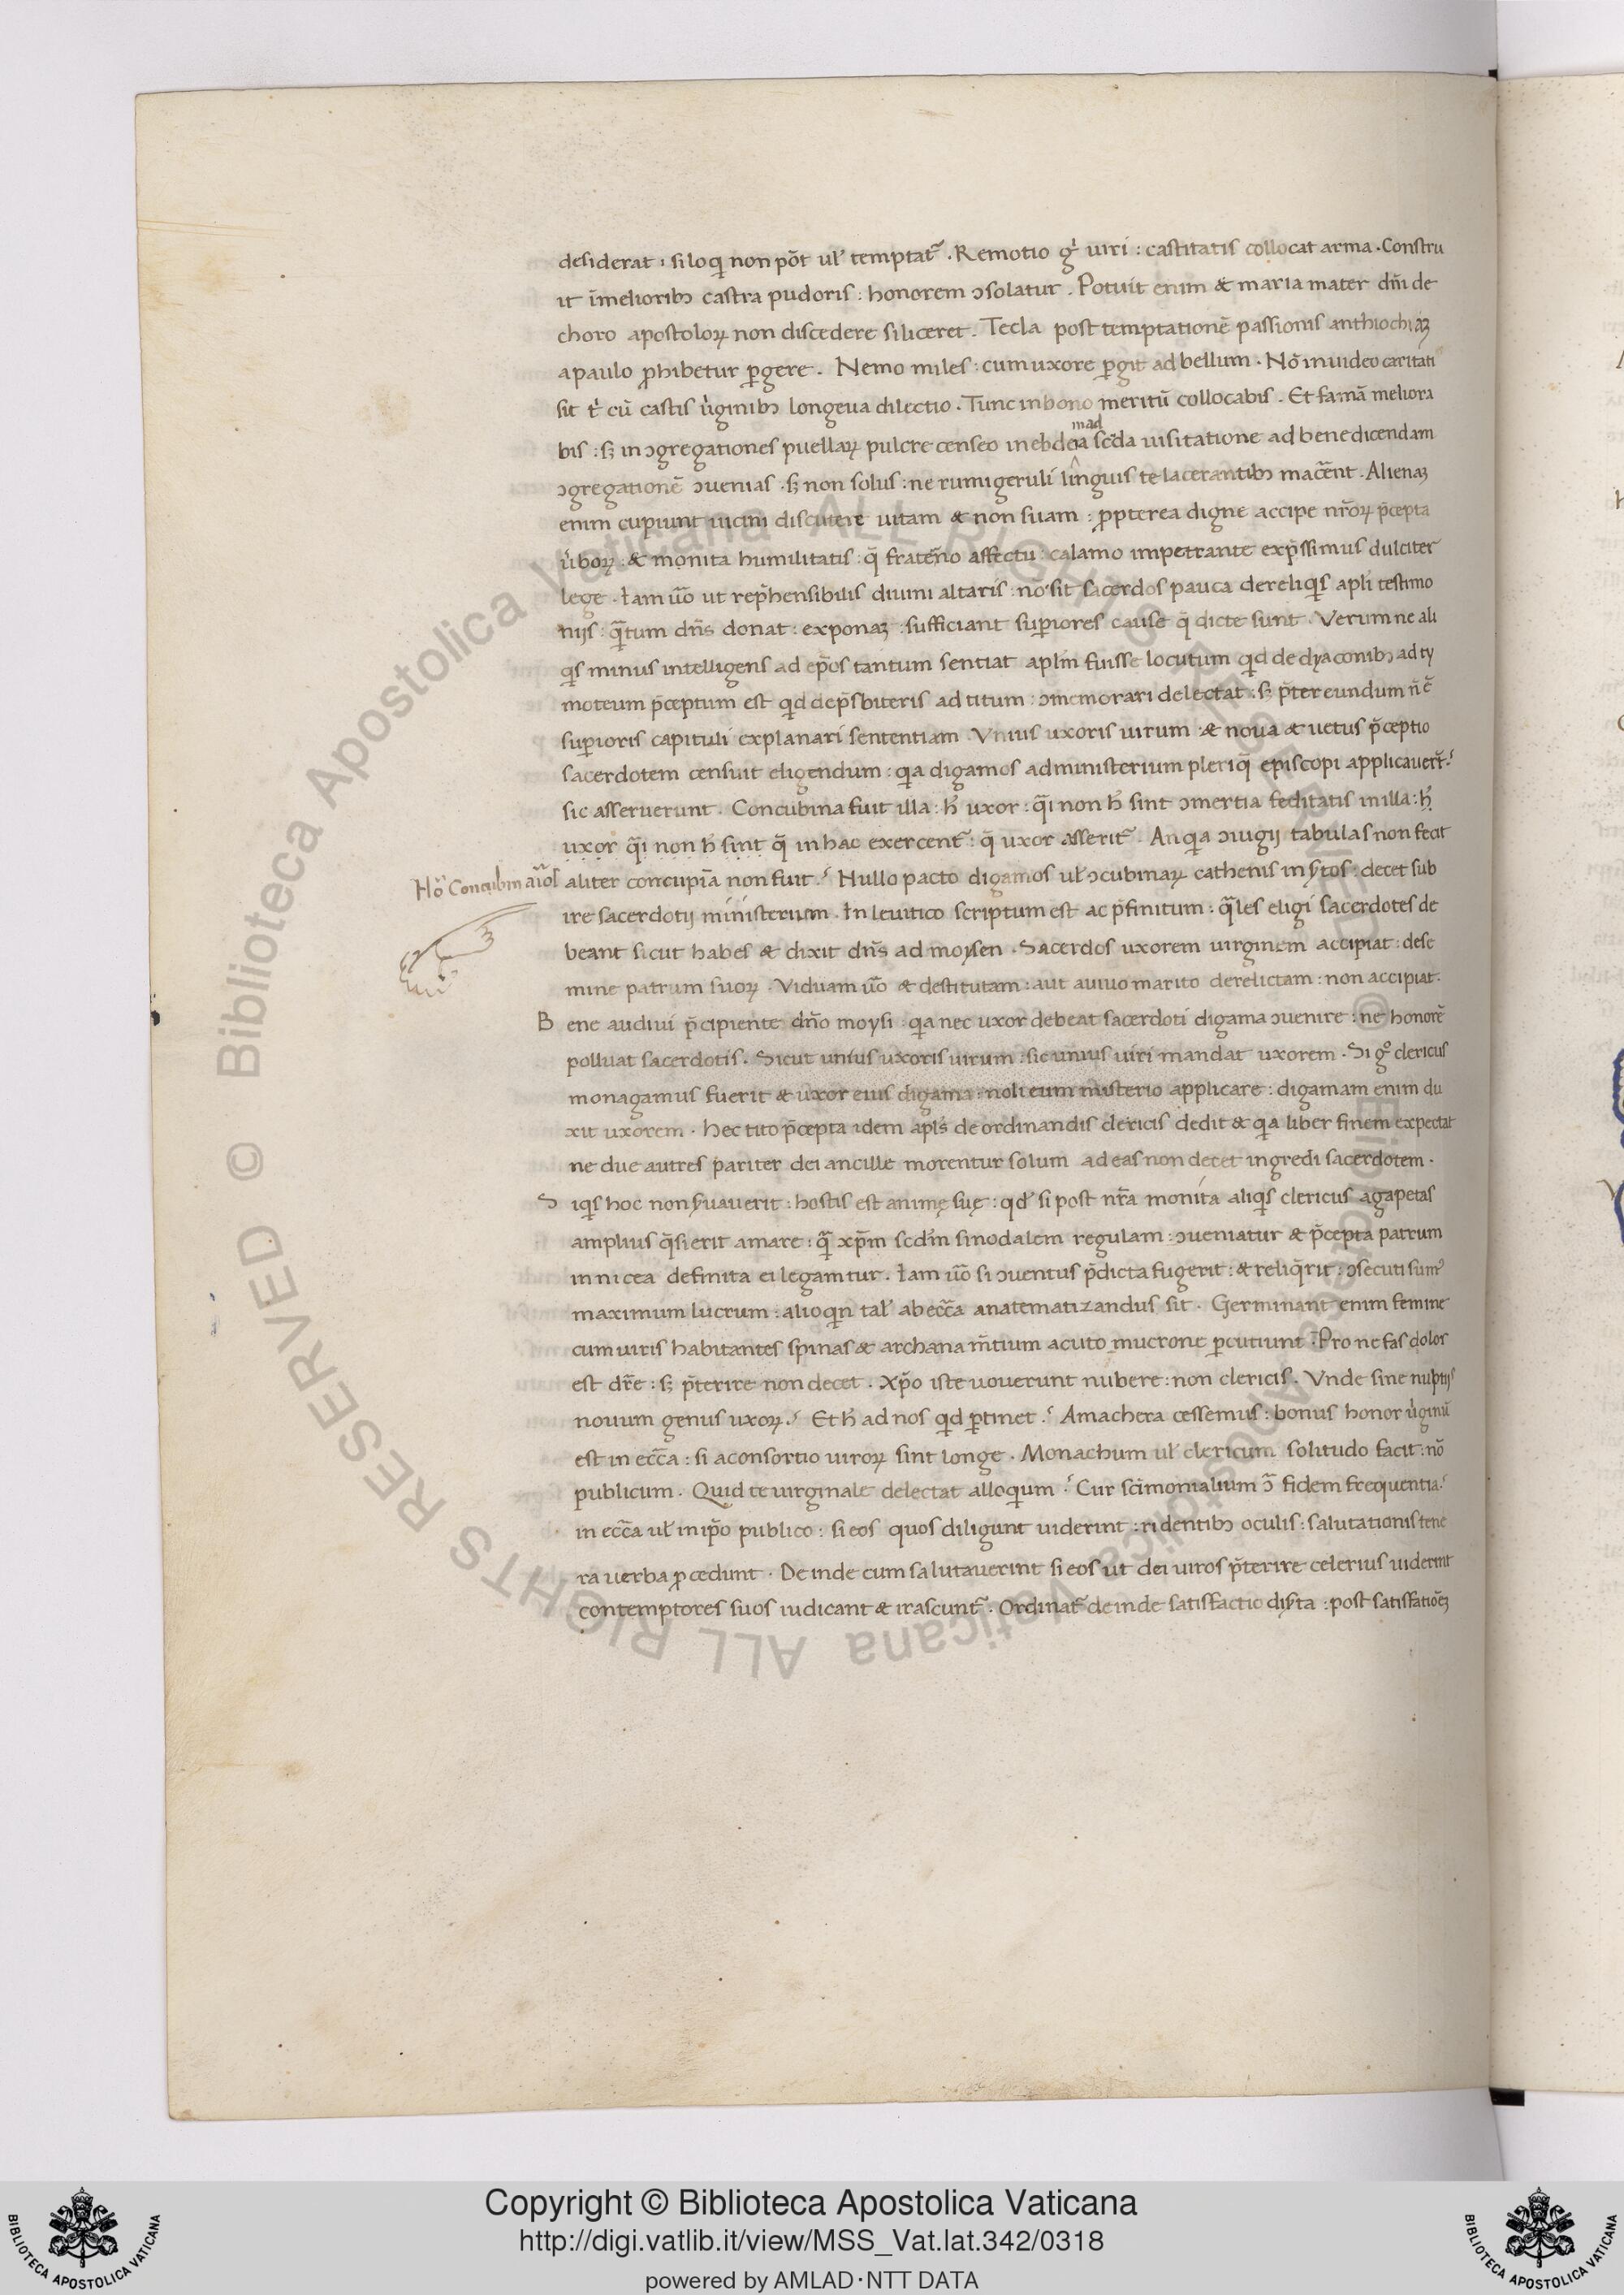 desiderat : si loq̄ non pōt ul' temptat᷑ . Remotio gͥ uiri : castitatis collocat arma . Constru
it ī meliorib; castra pudoris : honorem ↄsolatur . Potuit enim & maria mater dn̄i de
choro apostoloꝝ non discedere si liceret . Tecla post temptationē passionis anthiochiaꝫ
a paulo ꝓhibetur ꝑgere . Nemo miles : cum uxore ꝑgit ad bellum . Nō inuideo caritati
sit tͥ cū castis uͥginib; longeua dilectio . Tunc in bono meritū collocabis . Et famā meliora
bis : sꝫ in ↄgregationes puellaꝝ pulcre censeo in ebdoa sc̄da uisitatione ad benedicendam
mad
ↄgregationē ↄuenias . sꝫ non solus : ne rumigeruli linguis te lacerantib; mac̄ent . Alienaꝫ
enim cupiunt uicini discutere uitam & non suam : ꝓpterea digne accipe nr̄oꝝ p̄cepta
uͥboꝝ : & monita humilitatis : q̄ frat̄no affectu : calamo impetrante exp̄ssimus dulciter
lege . Iam uō ut rep̄hensibilis diuini altaris : nō sit sacerdos pauca de reliqͥs apl'i testimo
niis : qᷓtum dn̄s donat : exponaꝫ : sufficiant suꝑiores cause q̄ dicte sunt . Verum ne ali
qͥs minus intelligens ad ep̄os tantum sentiat aplm̄ fuisse locutum qͥd de dyaconib; ad ty
moteum p̄ceptum est qͥd de p̄sbiteris ad titum : ↄmemorari delectat : sꝫ p̄tereundum n̄ ē
suꝑioris capituli explanari sententiam . Vnius uxoris uirum : & noua & uetus p̄ceptio
sacerdotem censuit eligendum : qͥa digamos ad ministerium pleriqꝫ episcopi applicauer̄t .
sic asseruerunt . Concubina fuit illa : h̓ uxor : qᷓi non h̓ sint ↄmertia feditatis in illa : h̓
uxor qᷓi non h̓ sint q̄ in hac exercent᷑ : q̄ uxor asserit᷑ . An qͥa ↄiugij tabulas non fecit
aliter concupīa non fuit . Nullo pacto digamos ul' ↄcubinaꝝ cathenis inẏtos : decet sub
Nō Concubinaͥos
ire sacerdotij ministerium . In leuitico scriptum est ac p̄finitum : qᷓles eligi sacerdotes de
beant sicut habes & dixit dn̄s ad moysen . Sacerdos uxorem uirginem accipiat : de se
mine patrum suoꝝ . Viduam uō & destitutam : aut a uiuo marito derelictam : non accipiat .
B ene audiui p̄cipiente dn̄o moysi : qͥa nec uxor debeat sacerdoti digama ↄuenire : ne honorē
polluat sacerdotis . Sicut unius uxoris uirum : sic unius uiri mandat uxorem . Si gͦ clericus
monagamus fuerit & uxor eius digama : noli eum misterio applicare : digamam enim du
xit uxorem . hec tito p̄cepta idem apl's de ordinandis clericis dedit & qͥa liber finem expectat
ne due autres pariter dei ancille morentur solum ad eas non decet ingredi sacerdotem .
S iqͥs hoc non ẏuauerit : hostis est animę suę : qd' si post nr̄a monita aliqͥs clericus agapetas
amplius q̄sierit amare : qᷓ xp̄m scd'm sinodalem regulam : ↄueniatur & p̄cepta patrum
in nicea definita ei legantur . Iam uō si ↄuentus p̄dicta fugerit : & reliq̄rit : ↄsecuti sumꝰ
maximum lucrum : alioqͥn tal' ab ecc̄a anatematizandus sit . Germinant enim femine
cum uiris habitantes spinas & archana m̄tium acuto mucrone ꝑcutiunt . Pro nefas dolor
est dr̄e : sꝫ p̄terire non decet . Xp̄o iste uouerunt nubere : non clericis . Vnde sine nuptijs
nouum genus uxoꝝ . Et h̓ ad nos qͥd ꝑtinet . A machera cessemus : bonus honor uͥginū
est in ecc̄a : si a consortio uiroꝝ sint longe . Monachum ul' clericum solitudo facit : nō
publicum . Quid te uirginale delectat alloqͥum . Cur sc̄imonialium ↄᷓ fidem frequentia
in ecc̄a ul' in ip̄o publico : si eos quos diligunt uiderint : ridentib; oculis : salutationis tene
ra uerba ꝓcedunt . Deinde cum salutauerint si eos ut dei uiros p̄terire celerius uiderint
contemptores suos iudicant & irascunt᷑ . Ordinat᷑ deinde satisfactio disẏta : post satisfatiōeꝫ
Copyright © Biblioteca Apostolica Vaticana
http://digi.vatlib.it/view/MSS_Vat.lat.342/0318
powered by AMLAD·NTT DATA
BIBLIOTECA APOSTOLICA VATICANA
BIBLIOTECA APOSTOLICA VATICANA
© Biblioteca Apostolica Vaticana ALL RIGHTS RESERVED © Biblioteca Apostolica Vaticana ALL RIGHTS RESERVED